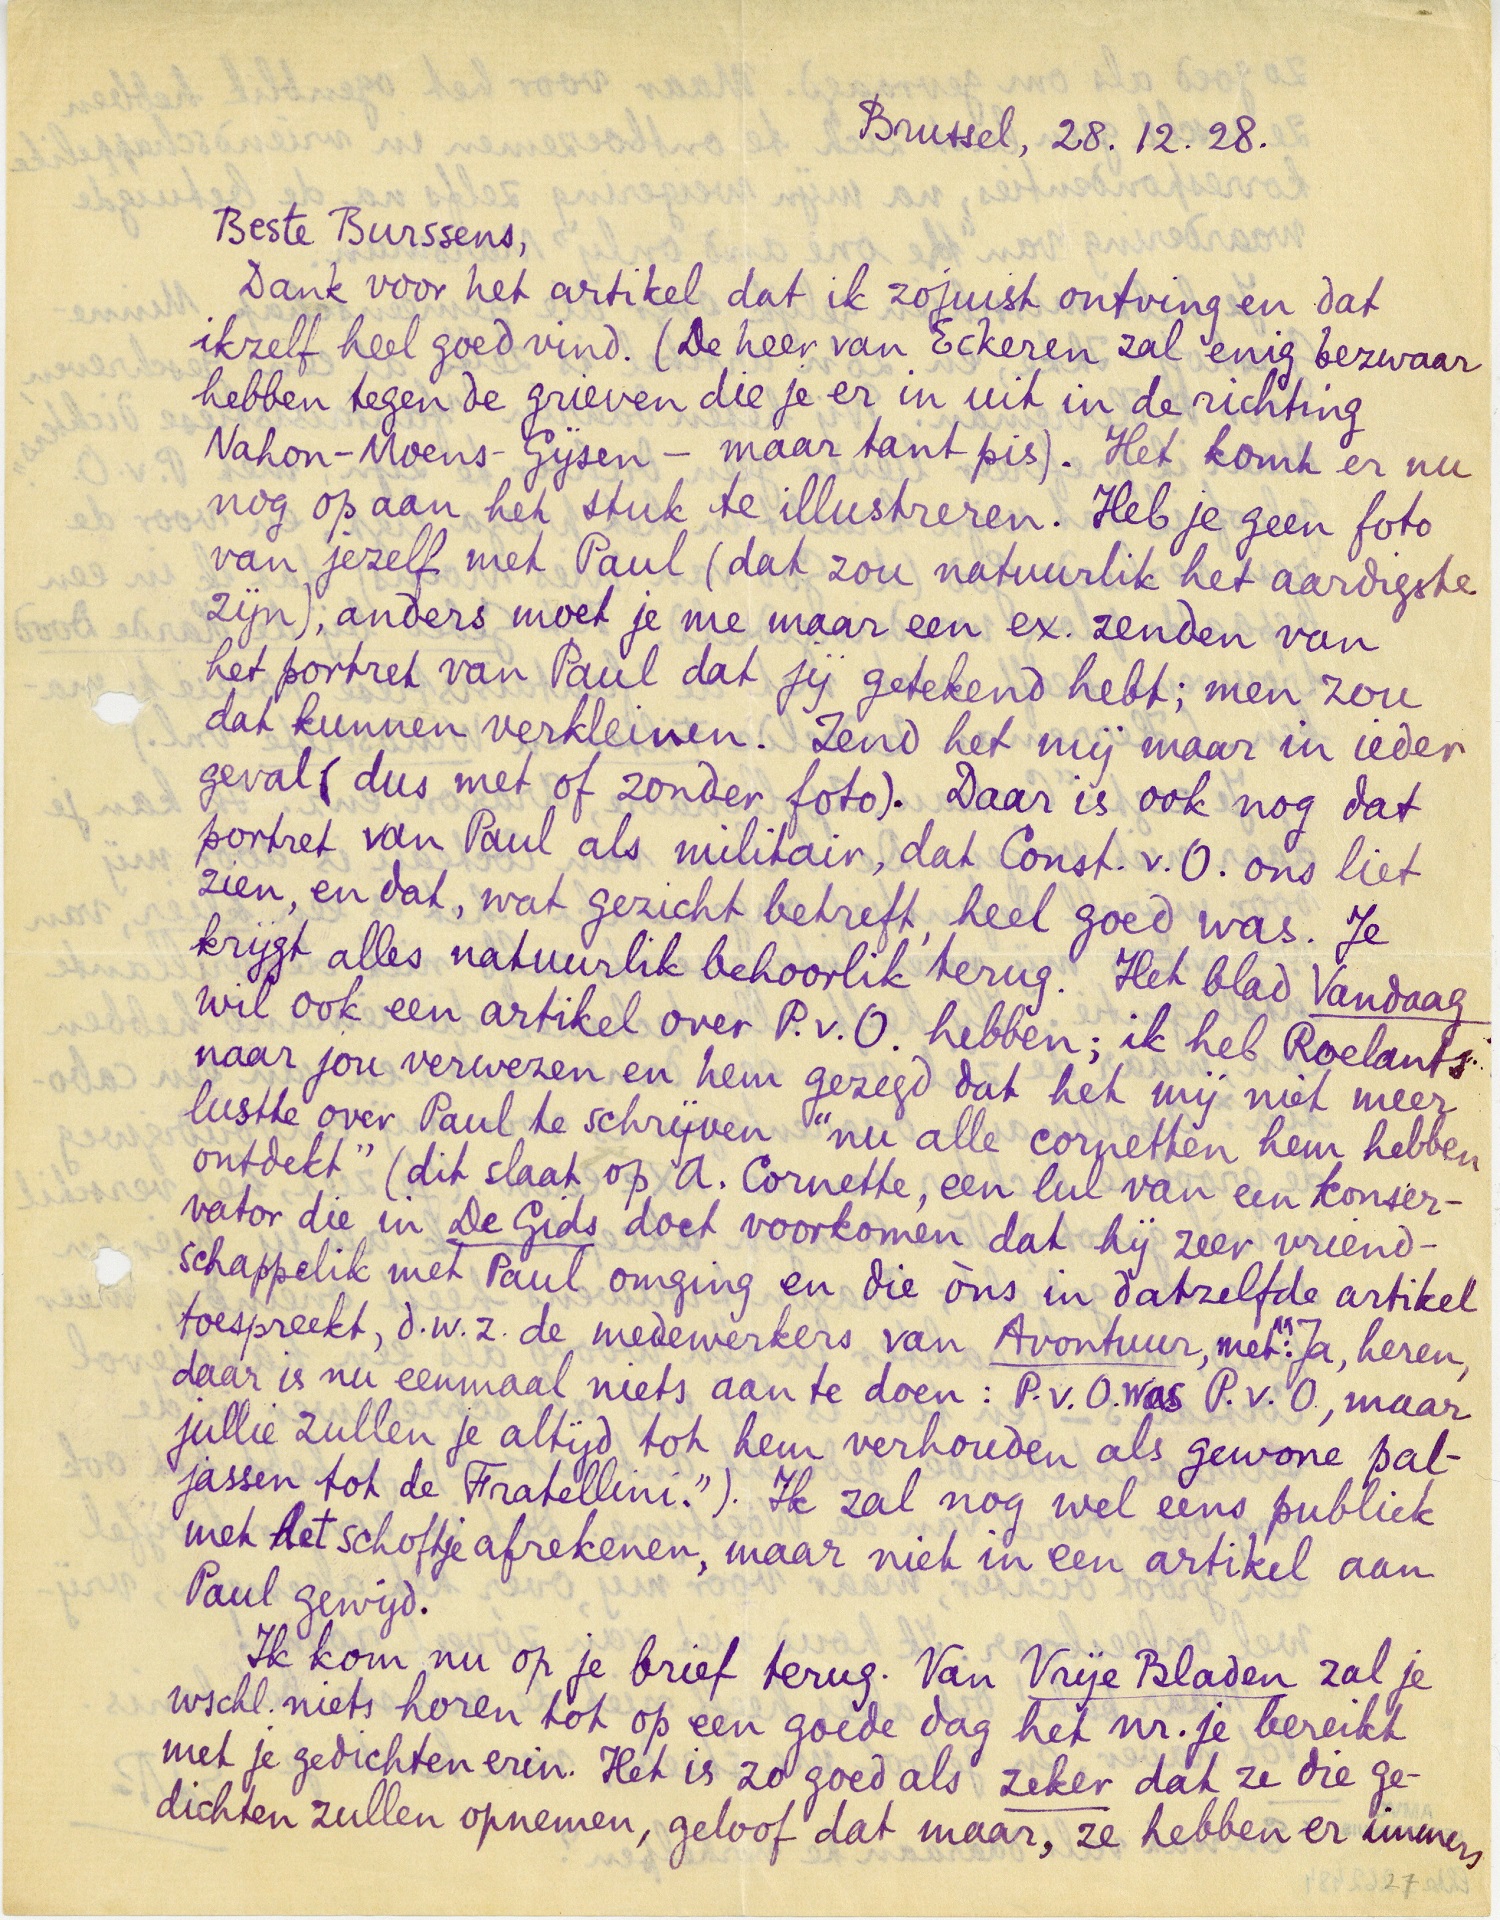 Brussel, 28. 12. 28.
Beste Burssens,
Dank voor het artikel dat ik zojuist ontving en dat
ikzelf heel goed vind. (De heer van Eckeren zal enig bezwaar
hebben tegen de grieven die je er in uit in de richting
Nahon-Moens-Gijsen - maar tant pis). Het komt er nu
nog op aan het stuk te illustreren. Heb je geen foto
van jezelf met Paul (dat zou natuurlik het aardigste
zijn); anders moet je me maar een ex. zenden van
het portret van Paul dat jij getekend hebt; men zou
dat kunnen verkleinen. Zend het mij maar in ieder
geval (dus met of zonder foto). Daar is ook nog dat
portret van Paul als militair, dat Const. v. O. ons liet
zien, en dat, wat gezicht betreft, heel goed was. Je
krijgt alles natuurlik behoorlik terug. Het blad Vandaag
wil ook een artikel over P. v. O. hebben; ik heb Roelants
naar jou verwezen en hem gezegd dat het mij niet meer
lustte over Paul te schrijven "nu alle cornetten hem hebben
ontdekt" (dit slaat op A. Cornette, een lul van een konser-
vator die in De Gids doet voorkomen dat hij zeer vriend-
schappelik met Paul omging en die òns in datzelfde artikel
toespreekt, d.w.z. de medewerkers van Avontuur, met: "Ja, heren,
daar is nu eenmaal niets aan te doen: P. v. O. was P. v. O., maar
jullie zullen je altijd tot hem verhouden als gewone pal-
jassen tot de Fratellini."). Ik zal nog wel eens publiek
met het schoftje afrekenen, maar niet in een artikel aan
Paul gewijd.
Ik kom nu op je brief terug. Van Vrije Bladen zal je
wschl. niets horen tot op een goede dag het nr. je bereikt
met je gedichten erin. Het is zo goed als zeker dat ze die ge-
dichten zullen opnemen, geloof dat maar, ze hebben er immers
27